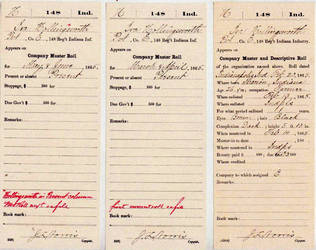 H 148 Ind.
Ira Hollingsworth
Pvt, Co. E, 148 Reg't Indiana Inf.
Appears on
Company Muster Roll
for May & June, 1865.
Present or absent Present
Stoppage, $ 100 for
Due Gov't $ 100 for
Remarks:
Book mark:
J L Norris
Copyist.
H 148 Ind.
Ira Hollingsworth
Pvt, Co. E, 148 Reg't Indiana Inf.
Appears on
Company Muster Roll
for March & April, 1865.
Present or absent Present
Stoppage, $ 100 for
Due Gov't $ 100 for
Remarks:
first muster roll on file
Book mark:
J L Norris
Copyist.
H 148 Ind.
Ira Hollingsworth
Pvt, Co. E, 148 Reg't Indiana Inf.
Appears on
Company Muster and Descriptive Roll
of the organization named above. Roll dated
Indianapolis Ind Feb 22, 1865.
Where born Marion, Indiana
Age 26 y'rs; occupation Farmer
When enlisted
Where enlisted Indpls
For what period enlisted 1 years.
Eyes Brown; hair Black
Complexion Dark; height 5 ft. 10 in.
When mustered in
Where mustered in Indpls
Bounty paid $ 100; due $ 100
Remarks:
Company to which assigned E
Book mark:
J L Norris
Copyist.